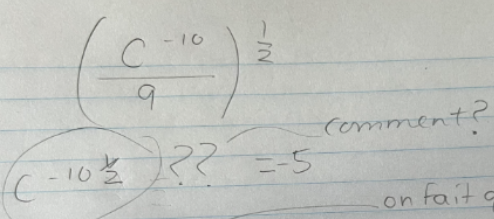 (C^-10 / 9)^1/2
comment?
(C^-10 1/2)?? = -5
on fait